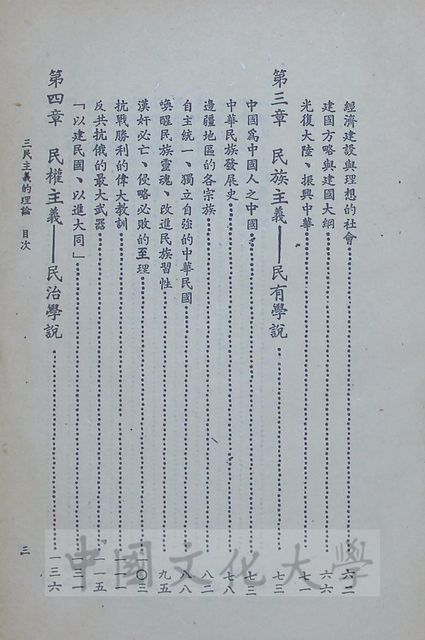 經濟建設與理想的社會⋯⋯六二
建國方略與建國大綱⋯⋯六六
光復大陸、振興中華⋯⋯七一
第三章　民族主義——民有學說⋯⋯七三
中國為中國人之中國⋯⋯七三
中華民族發展史⋯⋯七八
邊疆地區的各宗族⋯⋯八二
自主統一、獨立自強的中華民國⋯⋯八八
喚醒民族靈魂、改進民族習性⋯⋯九五
漢奸必亡、侵略必敗的至理⋯⋯一〇三
抗戰勝利的偉大教訓⋯⋯一一一
反共抗俄的最大武器⋯⋯一一五
「以建民國、以進大同」⋯⋯一三一
第四章　民權主義——民治學說⋯⋯一三六
三民主義的理論　目次
三
中國文化大學